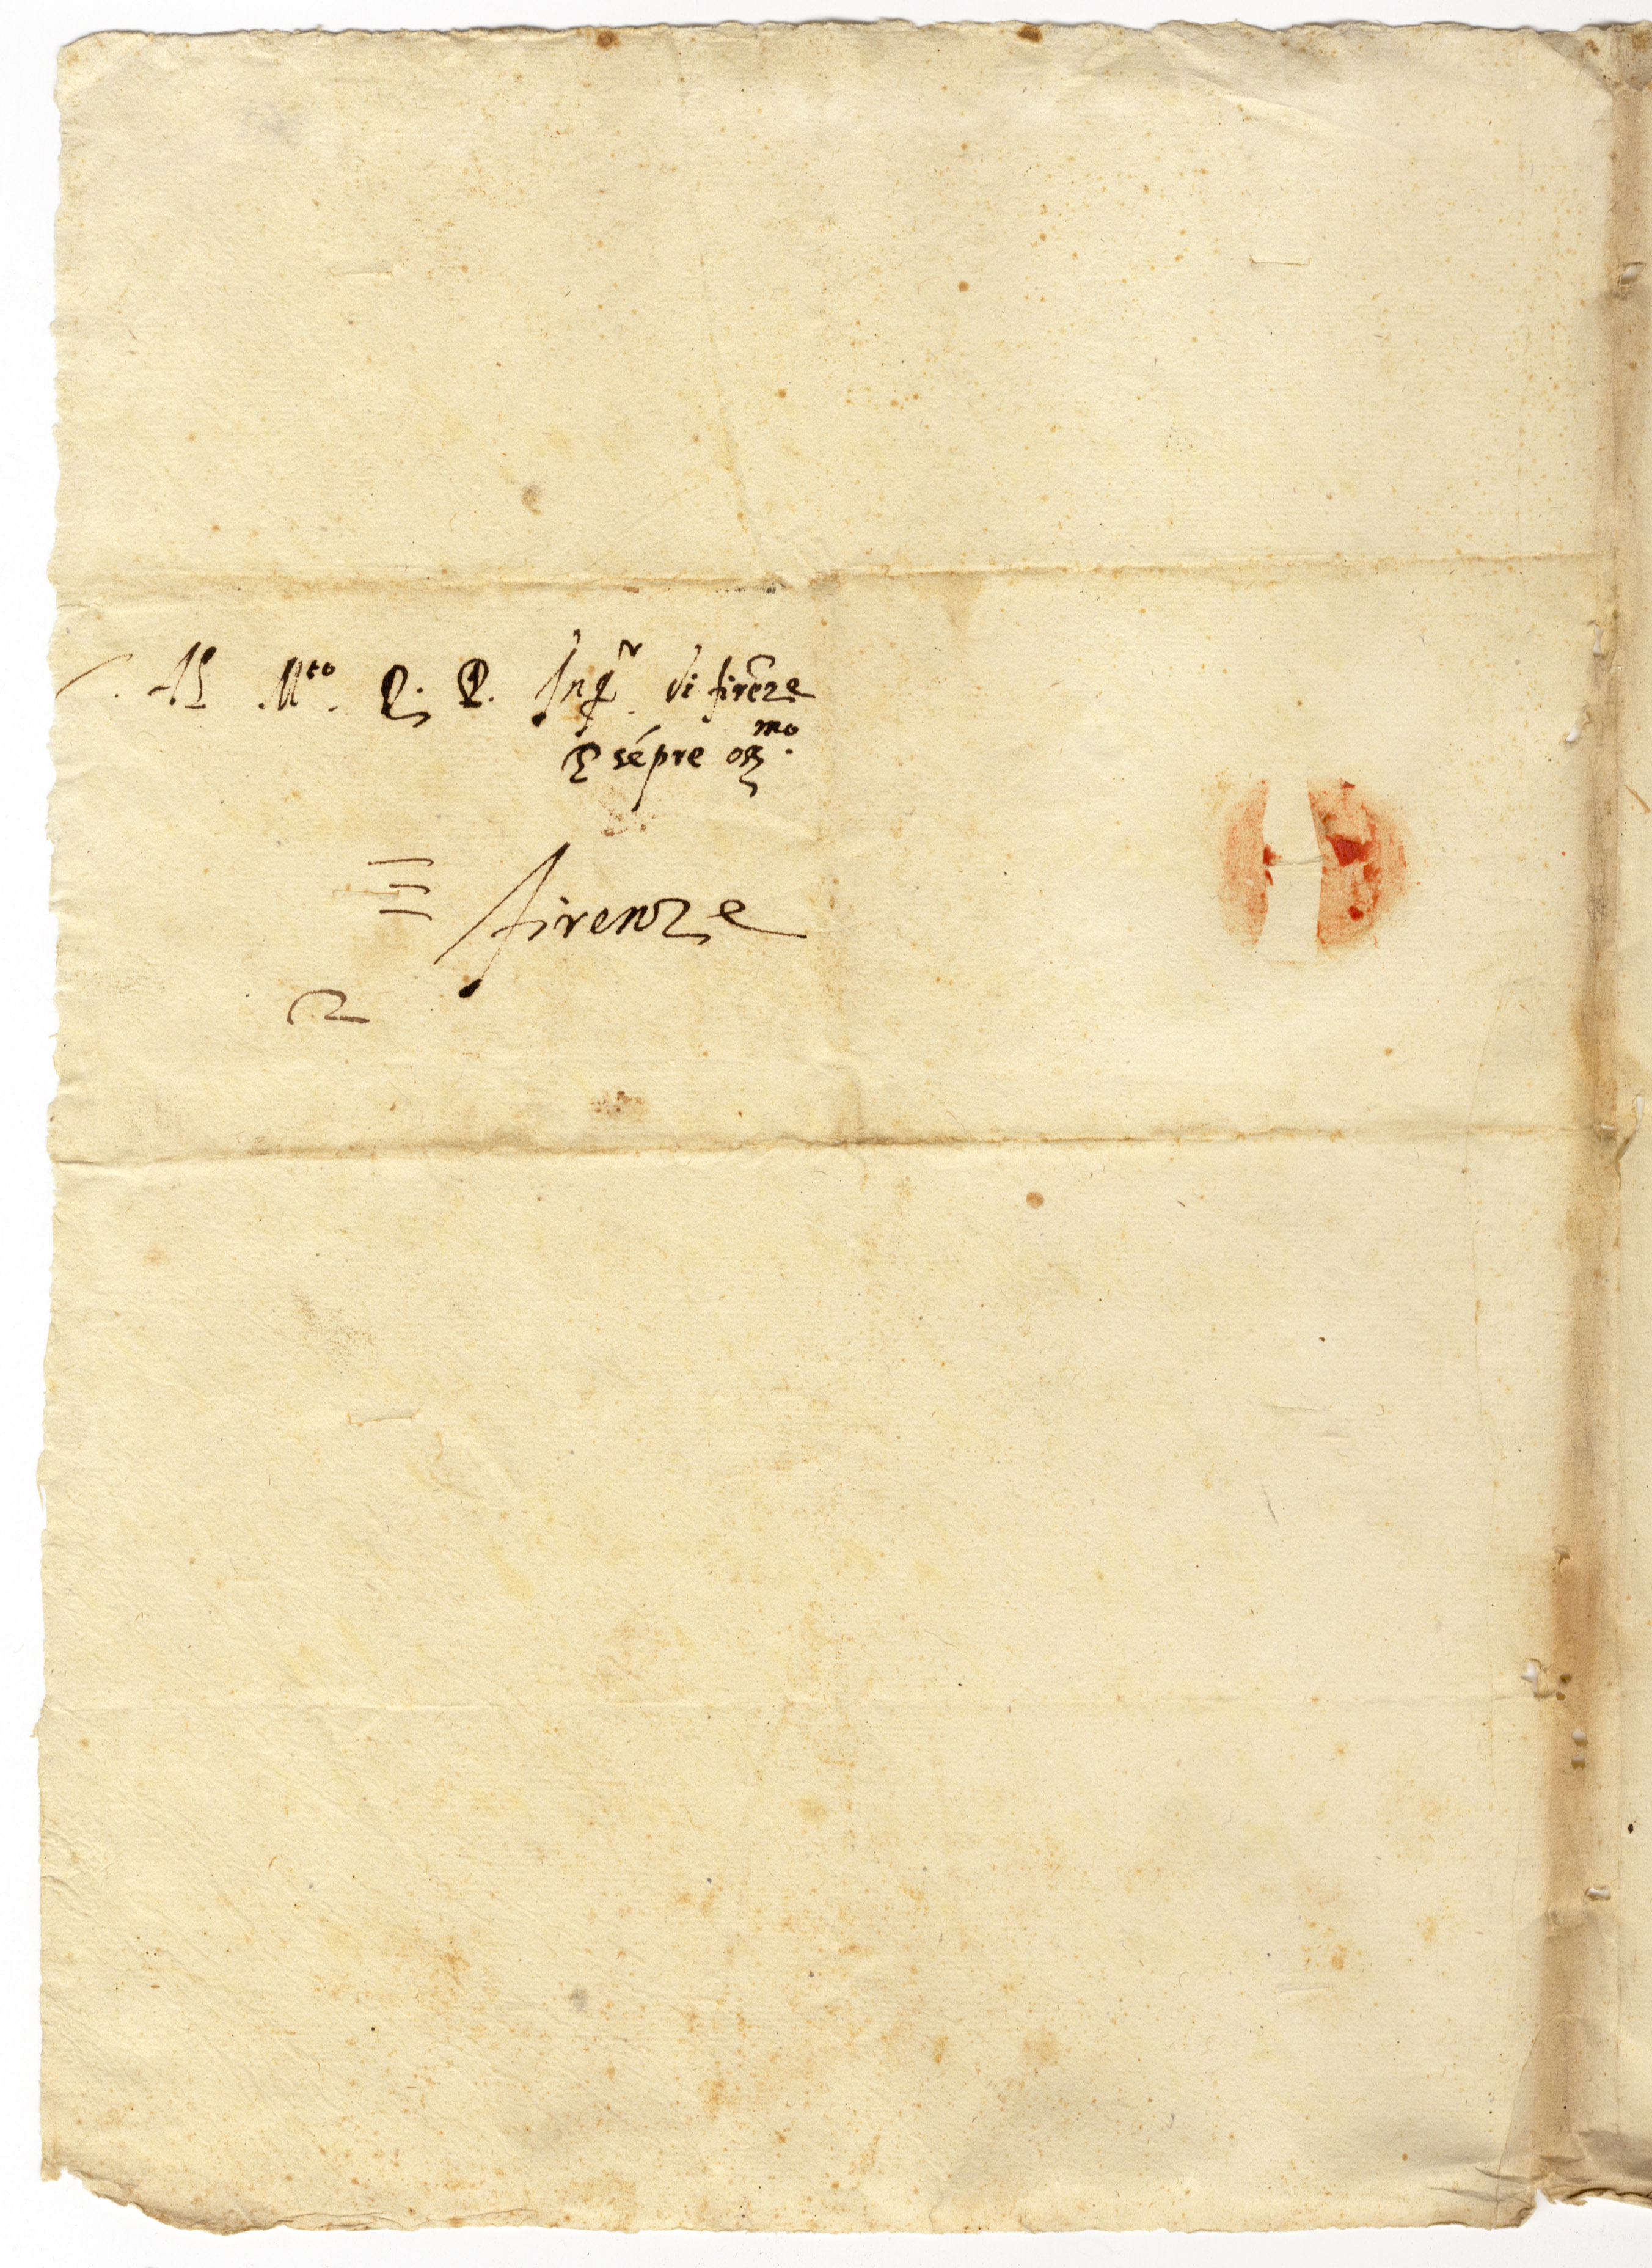 Al M.to R. P. Inqr. di firēze
P sēpre oss.mo
firenze